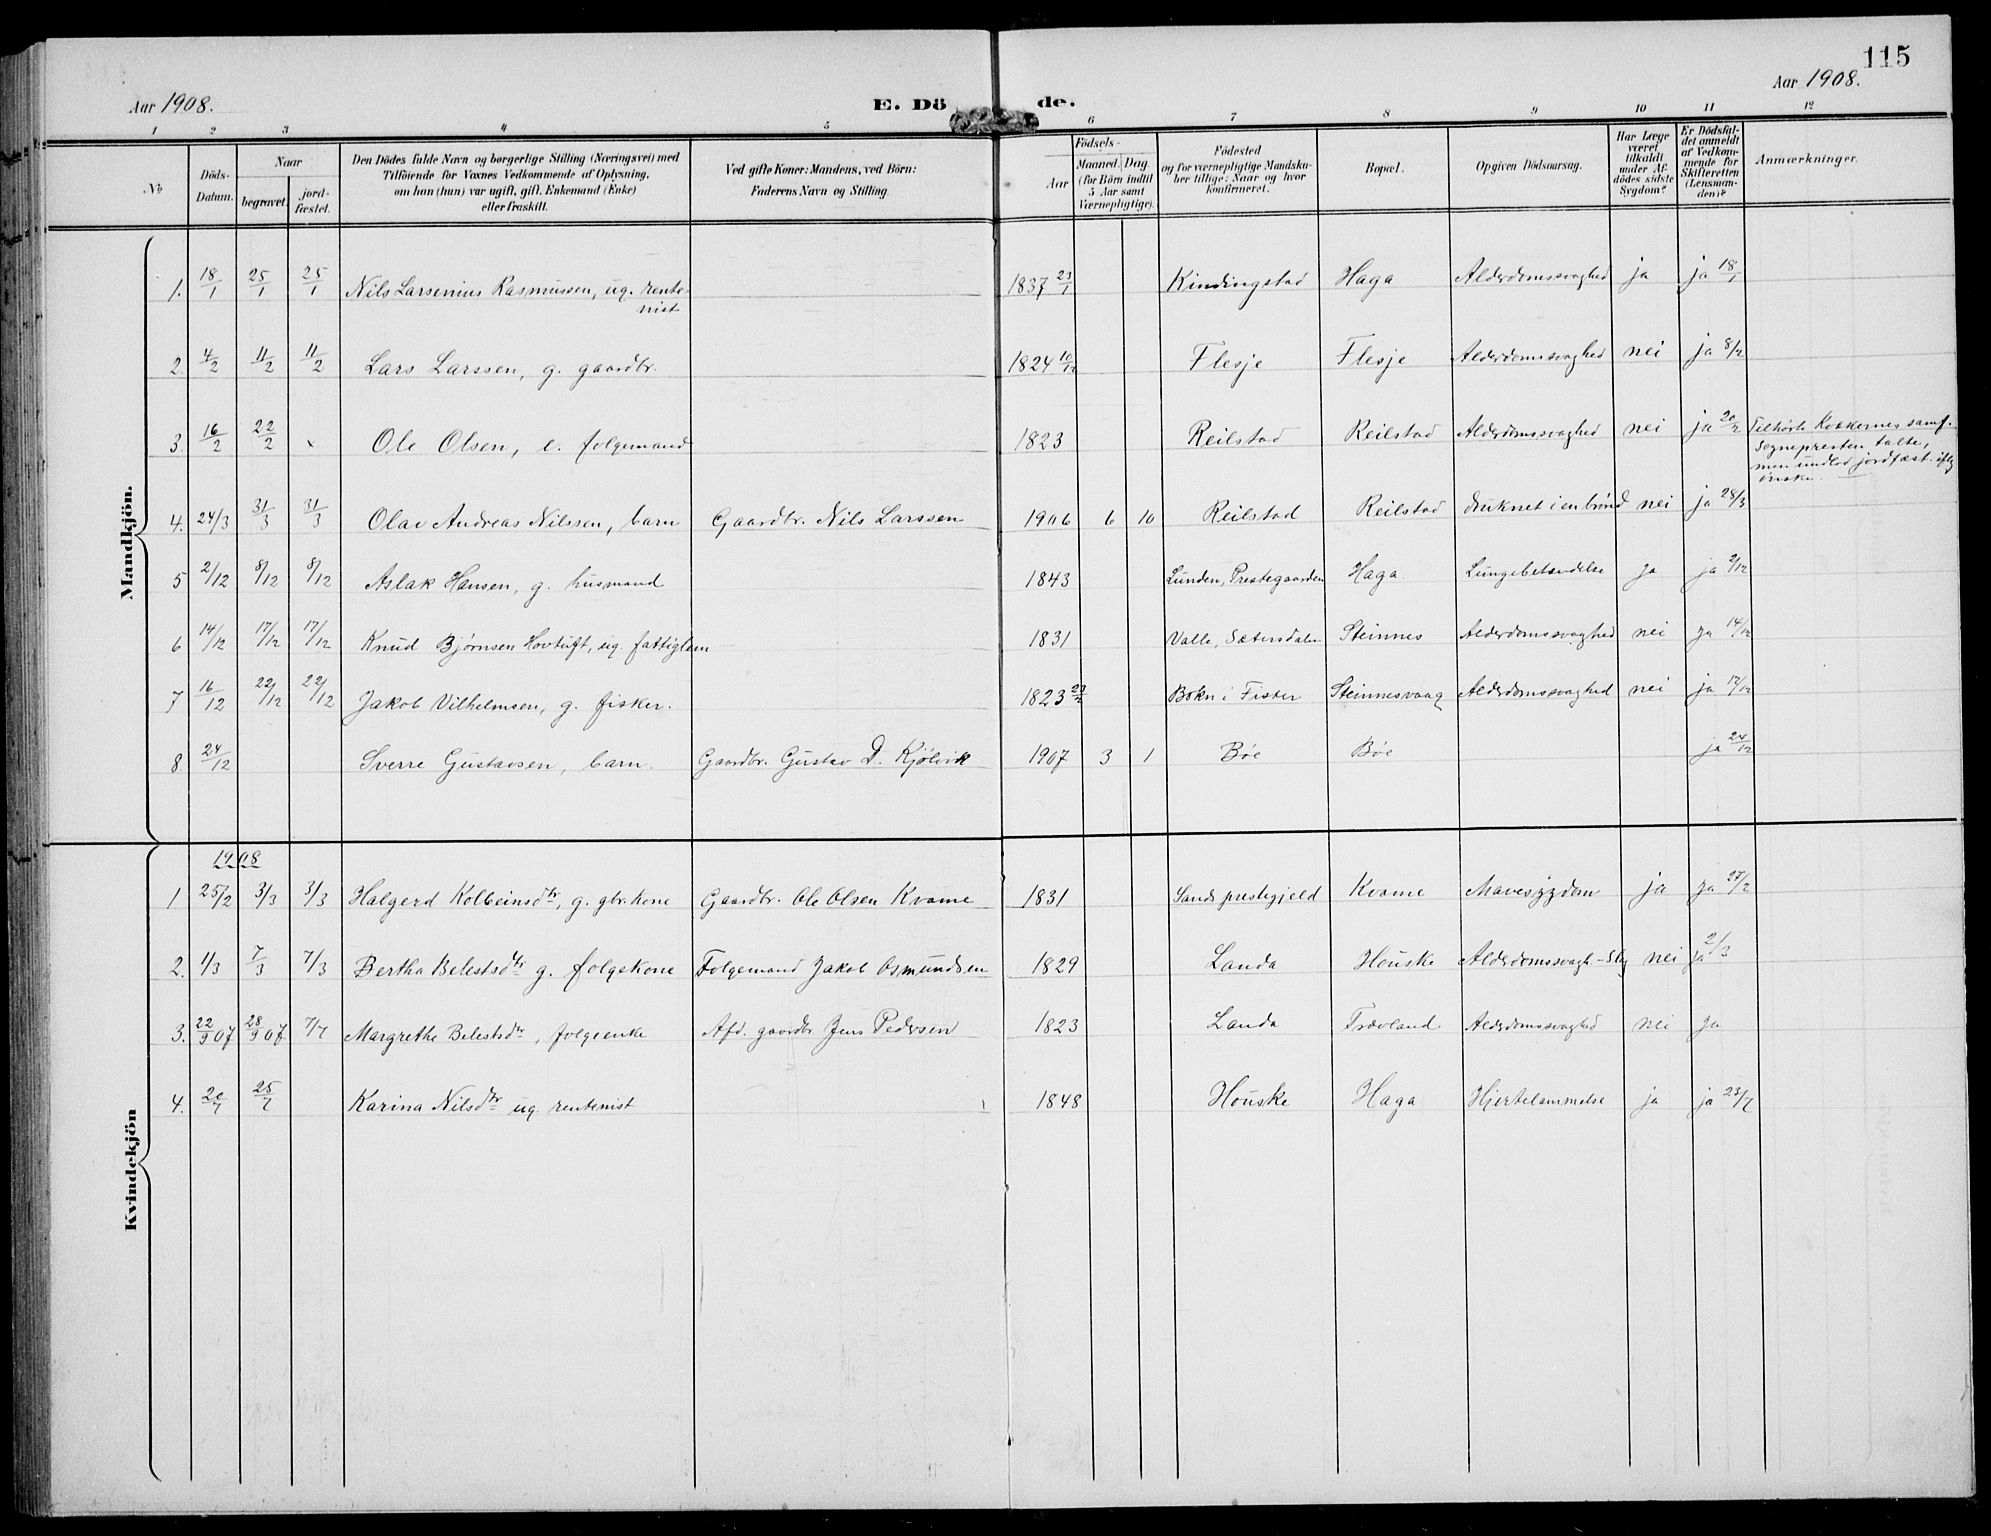 115
Aar 1908.
E. Dö de.
Aar 1908.
1 2 3 4 5 6 7 8 9 10 11 12
No
Döds-Datum.
Naar
begravet.
jord-fæstet.
Den Dödes fulde Navn og borgerlige Stilling (Næringsvei) med
Tilföiende for Voxnes Vedkommende af Oplysning,
om han (hun) var ugift, gift, Enkemand (Enke)
eller fraskilt.
Ved gifte Koner: Mandens, ved Börn:
Faderens Navn og Stilling.
Födsels-
Aar
Maaned. Dag.
(for Börn indtil
5 Aar samt
Værnepligtige).
Födested
og for værnepligtige Mandsku-
ber tillige: Naar og hvor
konfirmeret.
Bopæl.
Opgiven Dödsaarsag.
Har Læge
været
tilkaldt
under Af-
dödes sidste
Sygdom?
Er Dödsfal-
det anmeldt
af Vedkom-
mende for
Skifteretten
(Lensman-
den)?
Anmærkninger.
Mandkjön.
1. 18/1 25/1 25/1 Nils Larsenius Rasmussen, ug. rente-
nist 1837 23/1 Kindingstad Haga Alderdomssvaghed ja ja 18/1
2. 4/2 11/2 11/2 Lars Larssen, g. gaardbr. 1824 10/12 Flesje Flesje Alderdomssvaghed nei ja 8/2
3. 16/2 22/2 Ole Olsen, e. folgemand 1823 Reilstad Reilstad Alderdomssvaghed nei ja 20/2 Tilhørte Kvækernes samf.
Sognepresten talte,
men undlod jordfæst. efter
ønske.
4. 24/3 31/3 31/3 Olav Andreas Nilssen, barn Gaardbr. Nils Larssen 1906 6 10 Reilstad Reilstad druknet i en brønd nei ja 28/3
5 2/12 8/12 8/12 Aslak Hansen, g. husmand 1843 Lunden, Prestegaarden Haga Lungebetændelse ja ja 9/12
6 14/12 17/12 17/12 Knud Bjørnsen Hovtuft, ug. fattiglem 1831 Valle, Sætersdalen Steinnes Alderdomssvaghed nei ja 14/12
7 16/12 22/12 22/12 Jakob Vilhelmsen, g. fisker. 1823 Bokn i Fister Steinnesvaag Alderdomssvaghed nei ja 17/12
8. 24/12 Sverre Gustavsen, barn. Gaardbr. Gustav D. Kjölvik 1907 3 1 Bøe Bøe ja 24/12
Kvindekjön
1908
1 25/2 3/3 3/3 Halgerd Kolbeinsdtr, g. gbr. kone Gaardbr. Ole Olsen Kvame 1831 Sands prestegjeld Kvame Mavesygdom ja ja 27/2
2. 1/3 7/3 7/3 Bertha Belestsdtr g. folgekone Folgemand Jakob Osmundsen 1829 Landa Houske Alderdomssvagh. - Slag nei ja 2/3
3. 22/9 07 28/9 07 7/7 Margrethe Belestsdtr, folgeenke Afd. gaardbr. Jens Pedersen 1823 Landa Trævland Alderdomssvaghed nei ja
4. 20/7 25/7 Karina Nilsdtr ug. rentenist 1848 Houske Haga Hjertelammelse ja ja 23/7